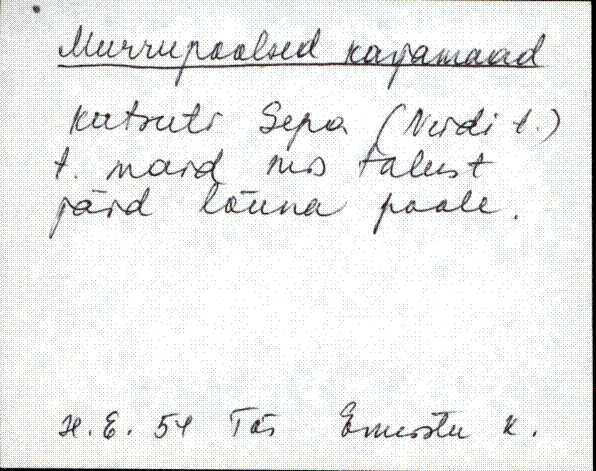 Murrupoolsed karjamaad
kutsuti Sepa (Neidi t.)
t. maid mis talust
jäid lõuna poole.
H. E. 54 Tõs Ermistu k.